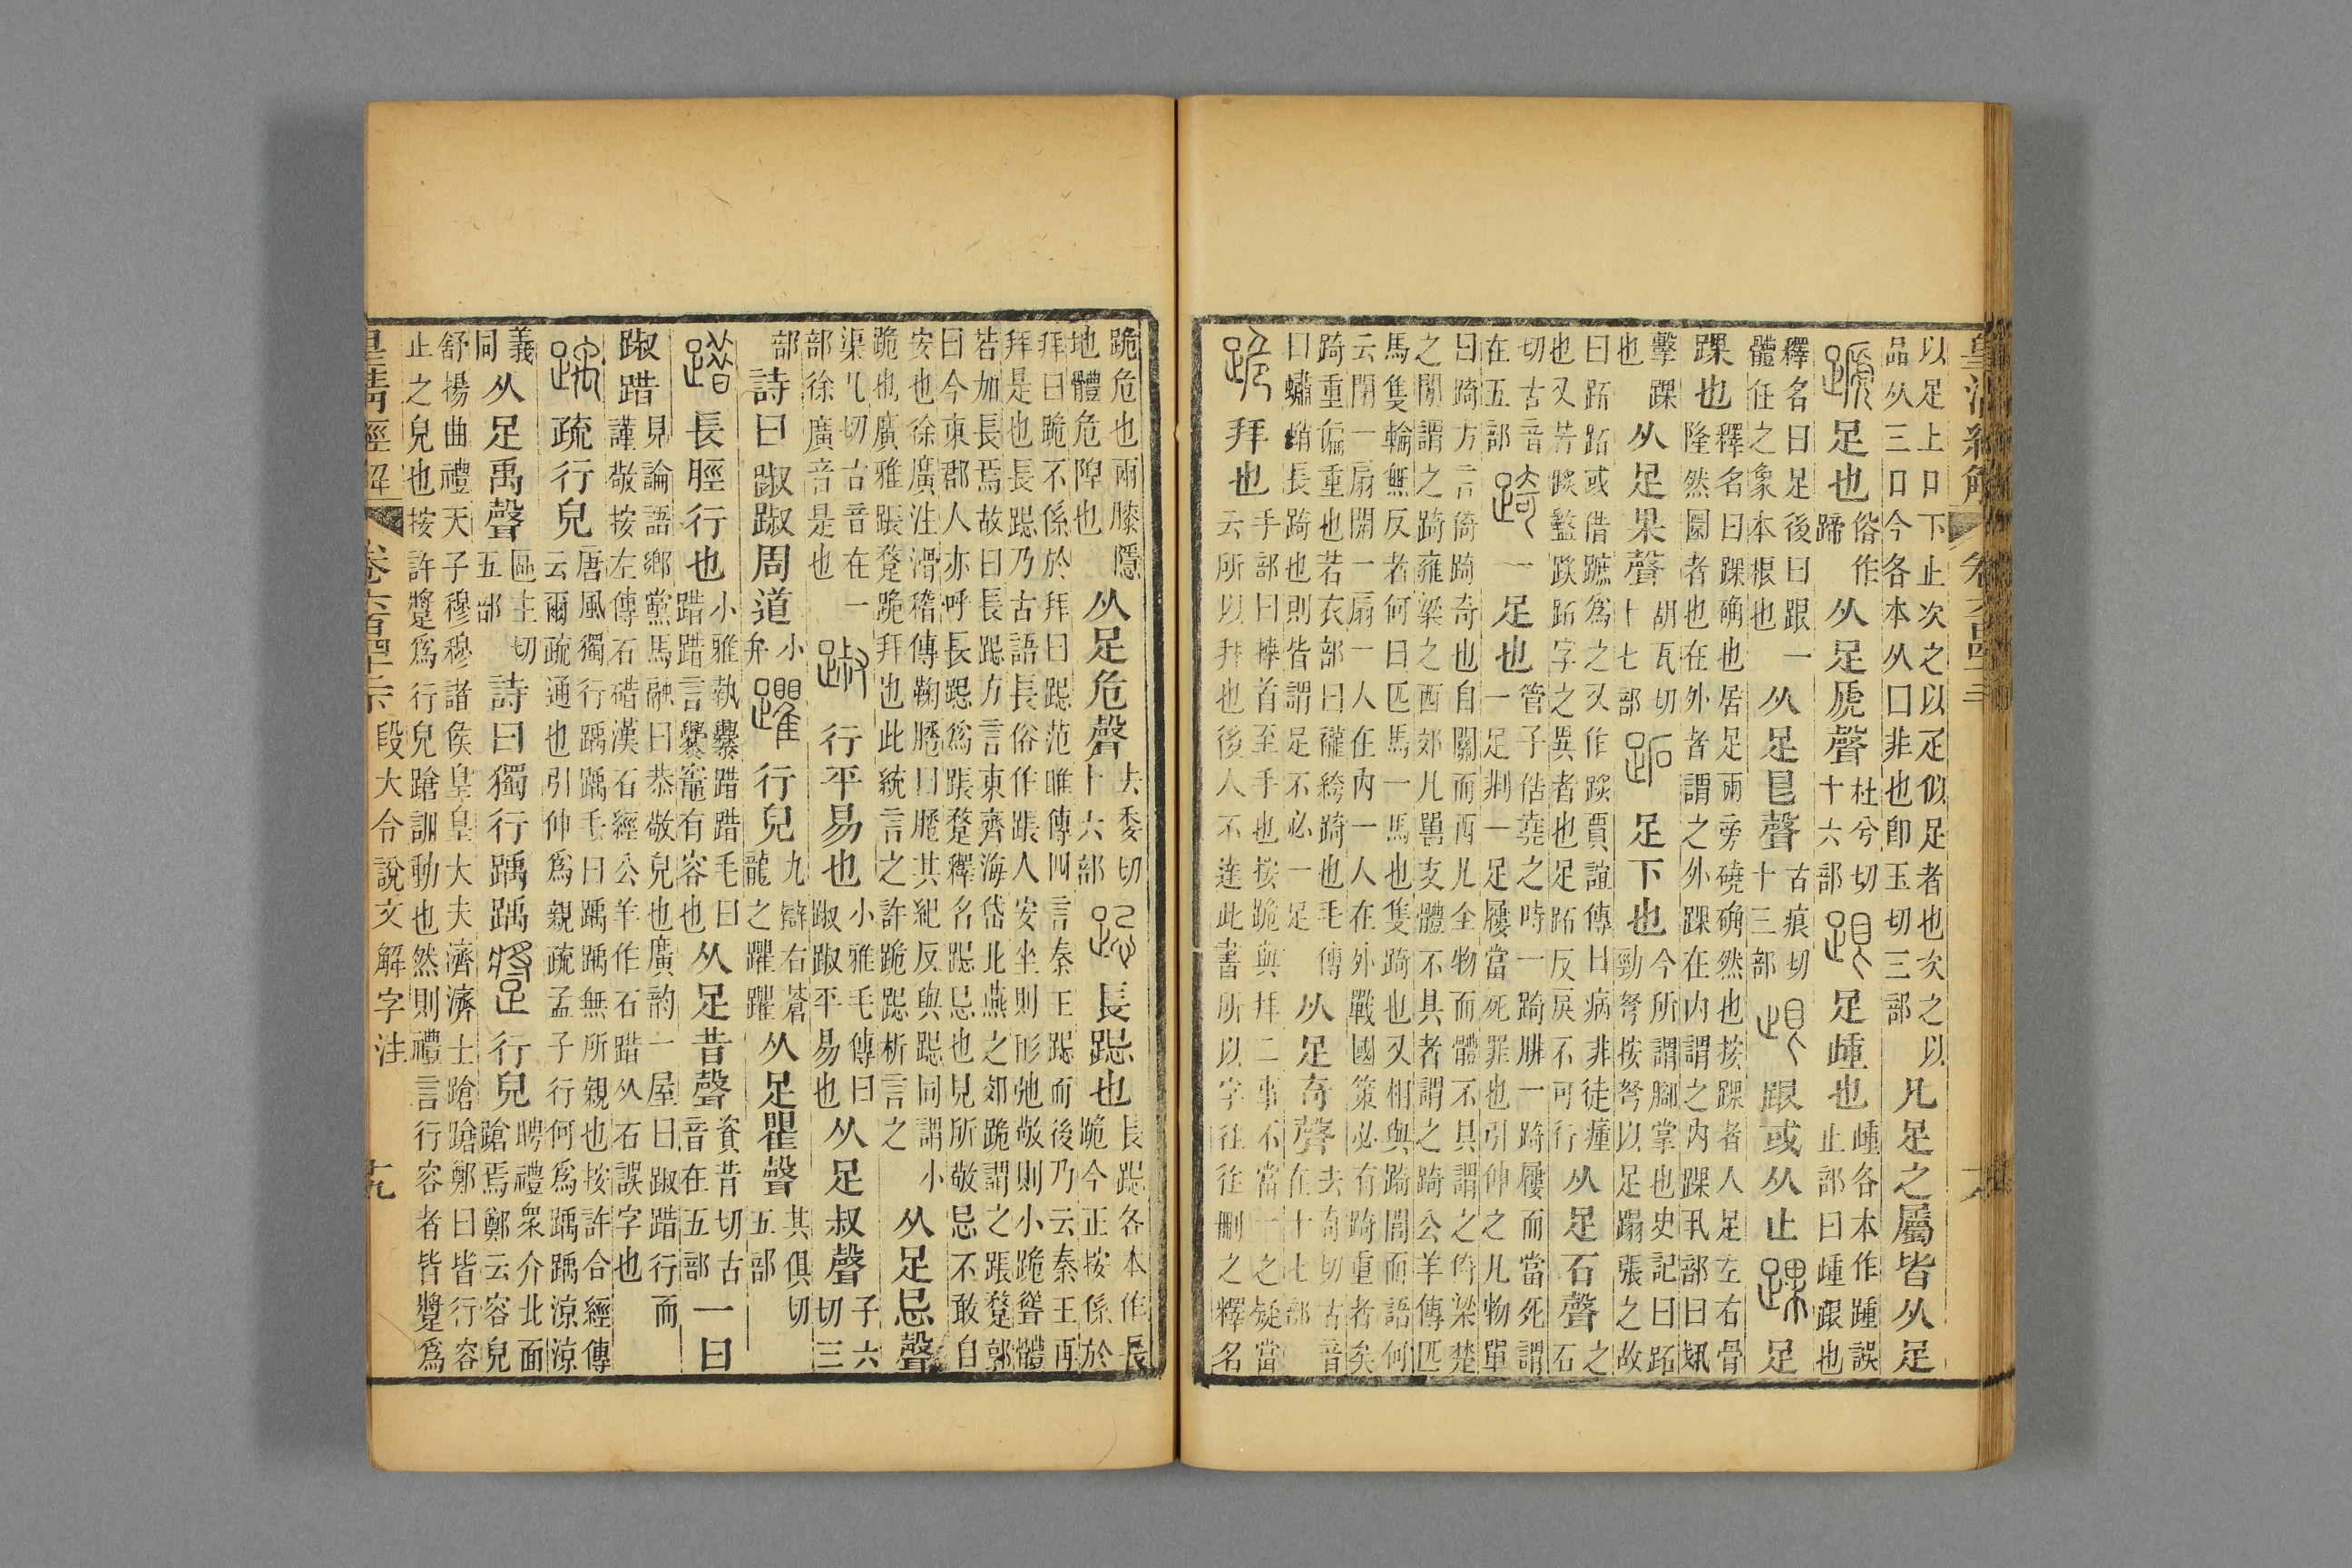 皇清經解 卷六百四十二 十八
以足上口下止次之以疋似足者也次之以品从三口今各本从口非也卽玉切三部凡足之屬皆从足
蹏足也俗作蹄从足虒聲杜兮切十六部跟足歱也歱各本作踵誤止部曰歱跟也
釋名曰足後曰跟一體任之象本根也从足皀聲古痕切十三部䟴跟或从止踝足
踝也釋名曰踝确也居足兩旁磽确然也按踝者人足左右骨隆然圜者也在外者謂之外踝在内謂之内踝丮部曰
擊踝也从足果聲胡瓦切十七部跖足下也今所謂腳掌也史記曰跖勁弩按弩以足蹋張之故
曰跖跖或借蹠爲之又作𨂂賈誼傳曰病非徒瘇也又苦𨂂盭𨂂跖字之異者也足跖反戾不可行从足石聲之石
切古音在五部踦一足也管子佸堯之時一踦腓一踦屨而當死謂一足剕一足屨當死罪也引伸之凡物單
曰踦方言倚踦奇也自關而西凡全物而體不具謂之倚梁楚之閒謂之踦雍梁之西郊凡嘼支體不具者謂之踦公羊傳匹
馬隻輪無反者何曰匹馬一馬也隻踦也又相與踦閭而語何云閉一扇開一扇一人在内一人在外戰國策必有踦重者矣
踦重偏重也若衣部曰襱絝踦也毛傳曰蠨蛸長踦也則皆謂足不必一足从足奇聲去奇切古音在十七部
跪拜也手部曰𢷎首至手也按跪與拜二事不當一之疑當云所以拜也後人不達此書所以字往往刪之釋名
跪危也兩膝隱地體危隉也从足危聲去委切十六部跽長跽也長跽各本作長跪今正按係於
拜曰跪不係於拜曰跽范雎傳四言秦王跽而後乃云秦王再拜是也長跽乃古語長俗作䠆人安坐則形弛敬則小跪聳體
若加長焉故曰長跽方言東齊海岱北燕之郊跪謂之䠆䠂郭曰今東郡人亦呼長跽爲䠆䠂釋名跽忌也見所敬忌不敢自
安也徐廣注滑稽傳鞠𦜕曰𦜕其紀反與跽同謂小跪也廣雅䠆䠂跪拜也此統言之許跪跽析言之从足忌聲
渠几切古音在一部徐廣音是也踧行平易也小雅毛傳曰踧踧平易也从足叔聲子六切三
部詩曰踧踧周道小弁躣行皃九辯右蒼龍之躣躣从足瞿聲其俱切五部
踖長脛行也小雅執爨踖踖毛曰踖踖言爨竈有容也从足昔聲資昔切古音在五部一曰
踧踖見論語鄉黨馬融曰恭敬皃也廣韵一屋曰踧踖行而謹敬按左傳石碏漢石經公羊作石踖从石誤字也
踽疏行皃唐風獨行踽踽毛曰踽踽無所親也按許合經傳云爾疏通也引伸爲親疏孟子行何爲踽踽涼涼
義同从足禹聲區主切五部詩曰獨行踽踽䠗行皃聘禮衆介北面蹌焉鄭云容皃
舒揚曲禮天子穆穆諸侯皇皇大夫濟濟士蹌蹌鄭曰皆行容止之皃也按許䠗爲行皃蹌訓動也然則禮言行容者皆䠗爲
皇清經解 卷六百四十二 段大令說文解字注 十九